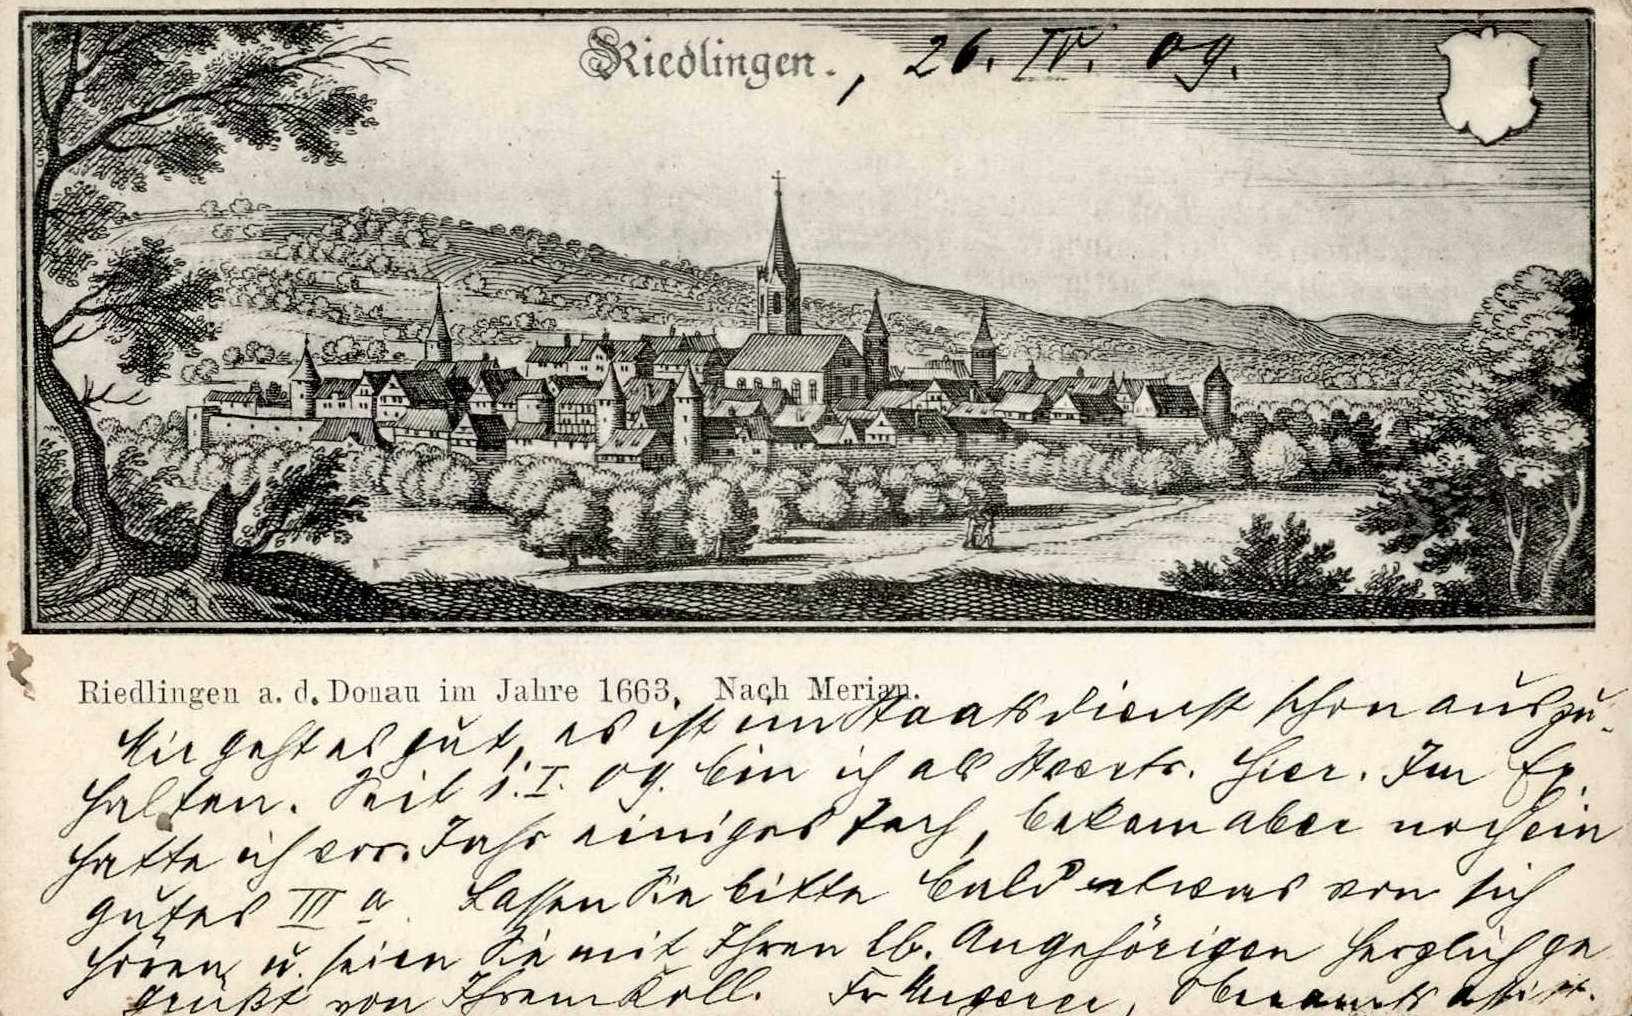 Riedlingen., 26. IV. 09.
Riedlingen a. d. Donau im Jahre 1663. Nach Merian.
Mir geht es gut, es ist im Staatsdienst schon auszu-
halten. Seit 1. I. 09. bin ich als hier. Im Ex.
hatte ich vor. Jahr einiges Pech, bekam aber noch ein
gutes III a. Lassen Sie bitte bald etwas von sich
hören u. seien Sie mit Ihren lb. Angehörigen herzlich ge
grüßt von Ihrem Koll. Fr Oberamts